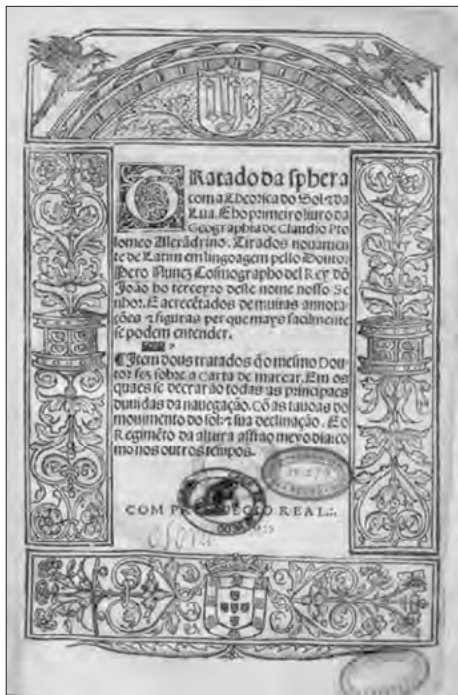 TRatado da sphera
com a Theorica do Sol ⁊ da
Lua. E ho primeiro liuro da
Geographia de Claudio Pto
lomeo Alexãdrino. Tirados nouamen
te de Latim em lingoagem pello Doutor
Pero Nunez Cosmographo del Rey dõ
João ho terceyro deste nome nosso Se
nhor. E acrecẽtados de muitas annota
ções ⁊ figuras per que mays facilmente
se podem entender.
¶Item dous tratados q̃ o mesmo Dou
tor fez sobre a Carta de marear. Em os
quaes se decrarão todas as principaes
duuidas da nauegação. Cõ as tauoas do
mouimento do sol: ⁊ sua declinação. E o
Regimẽto da altura assi ao meyo dia: co
mo nos outros tempos.
COM REAL.